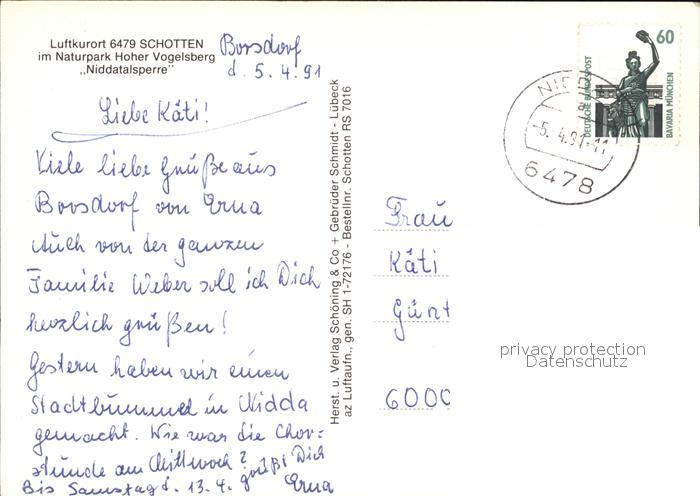 Luftkurort 6479 SCHOTTEN
im Naturpark Hoher Vogelsberg
„Niddatalsperre"
Borsdorf
d. 5.4.91
Liebe Käti!
Viele liebe Grüße aus
Borsdorf von Erna
Auch von der ganzen
Familie Weber soll ich Dich
herzlich grüßen!
Gestern haben wir einen
Stadtbummel in Nidda
gemacht. Wie war die Chor=
stunde am Mittwoch?
Bis Samstag d. 13.4. grüßt Dich
Erna
Herst. u. Verlag Schöning & Co + Gebrüder Schmidt - Lübeck
az Luftaufn., gen. SH 1-72176 - Bestellnr. Schotten RS 7016
60
DEUTSCHE BUNDESPOST
BAVARIA MÜNCHEN
-5.-4.91-11
6478
Frau
Käti
Günt
6000
privacy protection
Datenschutz